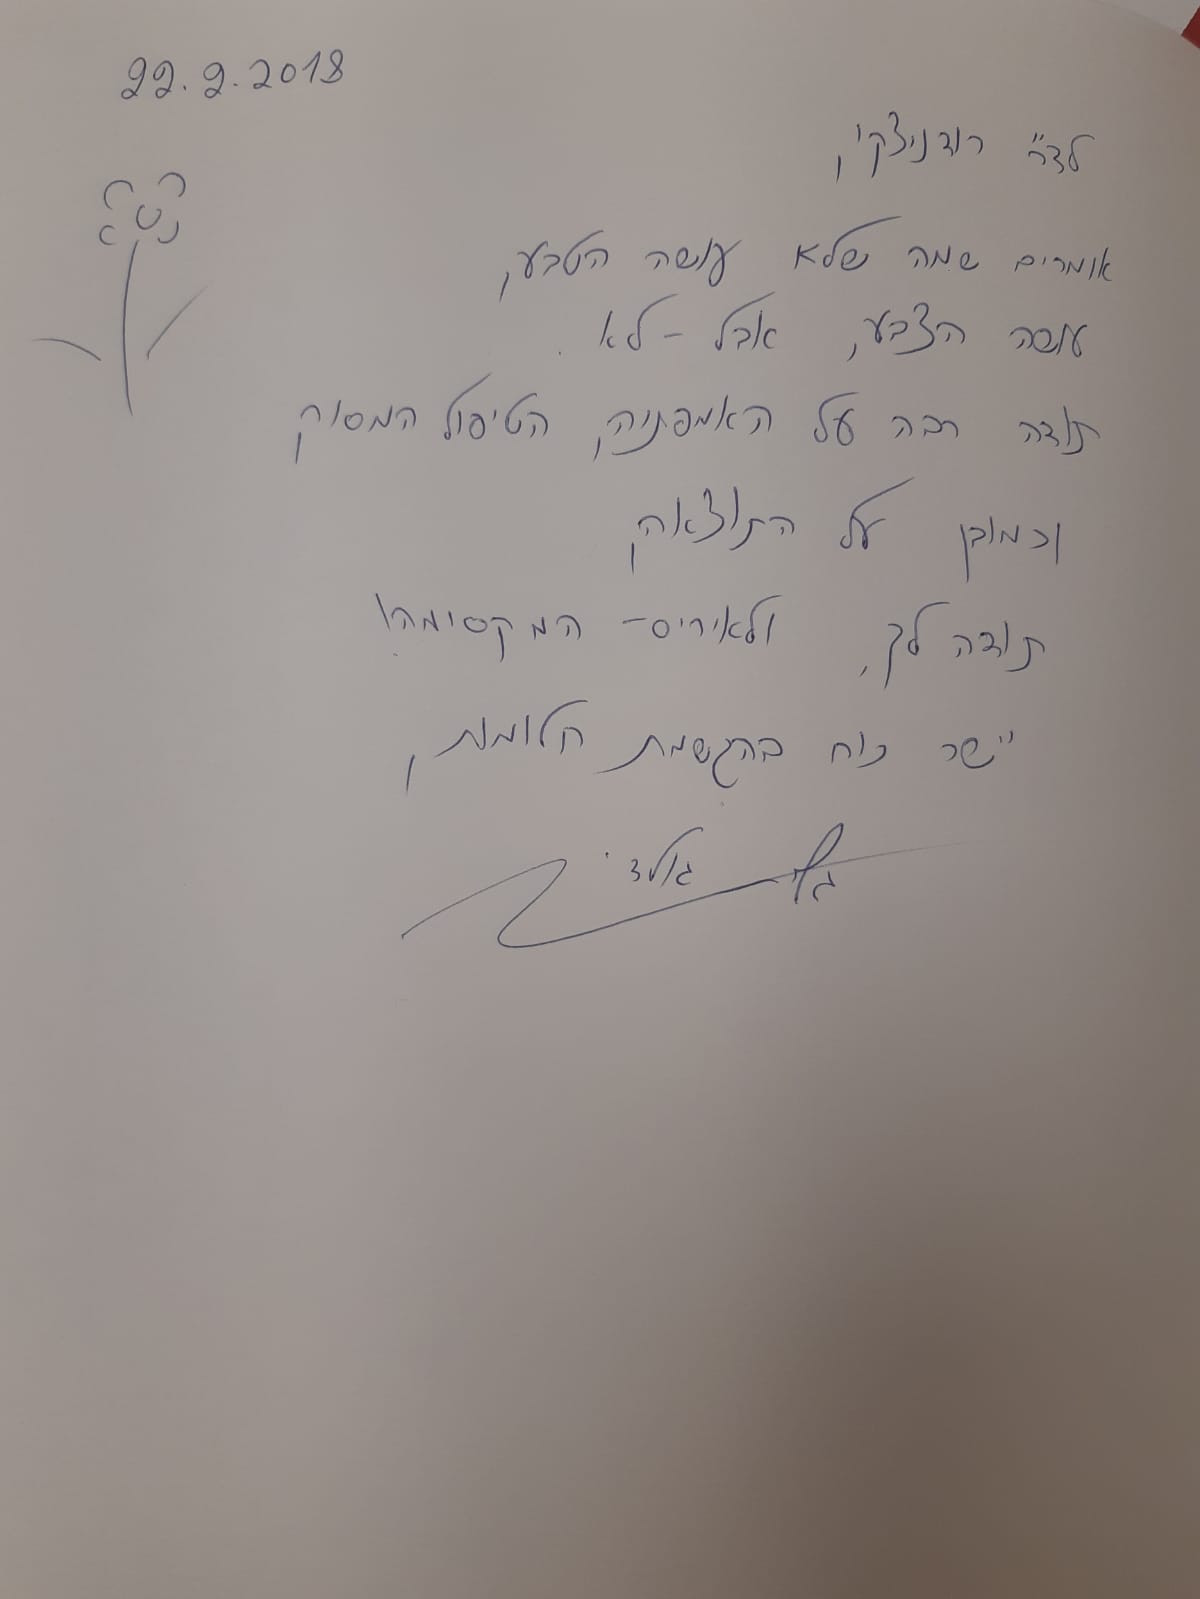 22.2.2018
לד"ר רודניצקי,
אומרים שמה שלא עושה הטבע,
עושה הצבע, אבל - לא.
תודה רבה על האמפתיה, הטיפול המסור,
וכמובן על התוצאה,
תודה לך, ולאיריס - המקסימה!
יישר כוח בהגשמת חלומות,